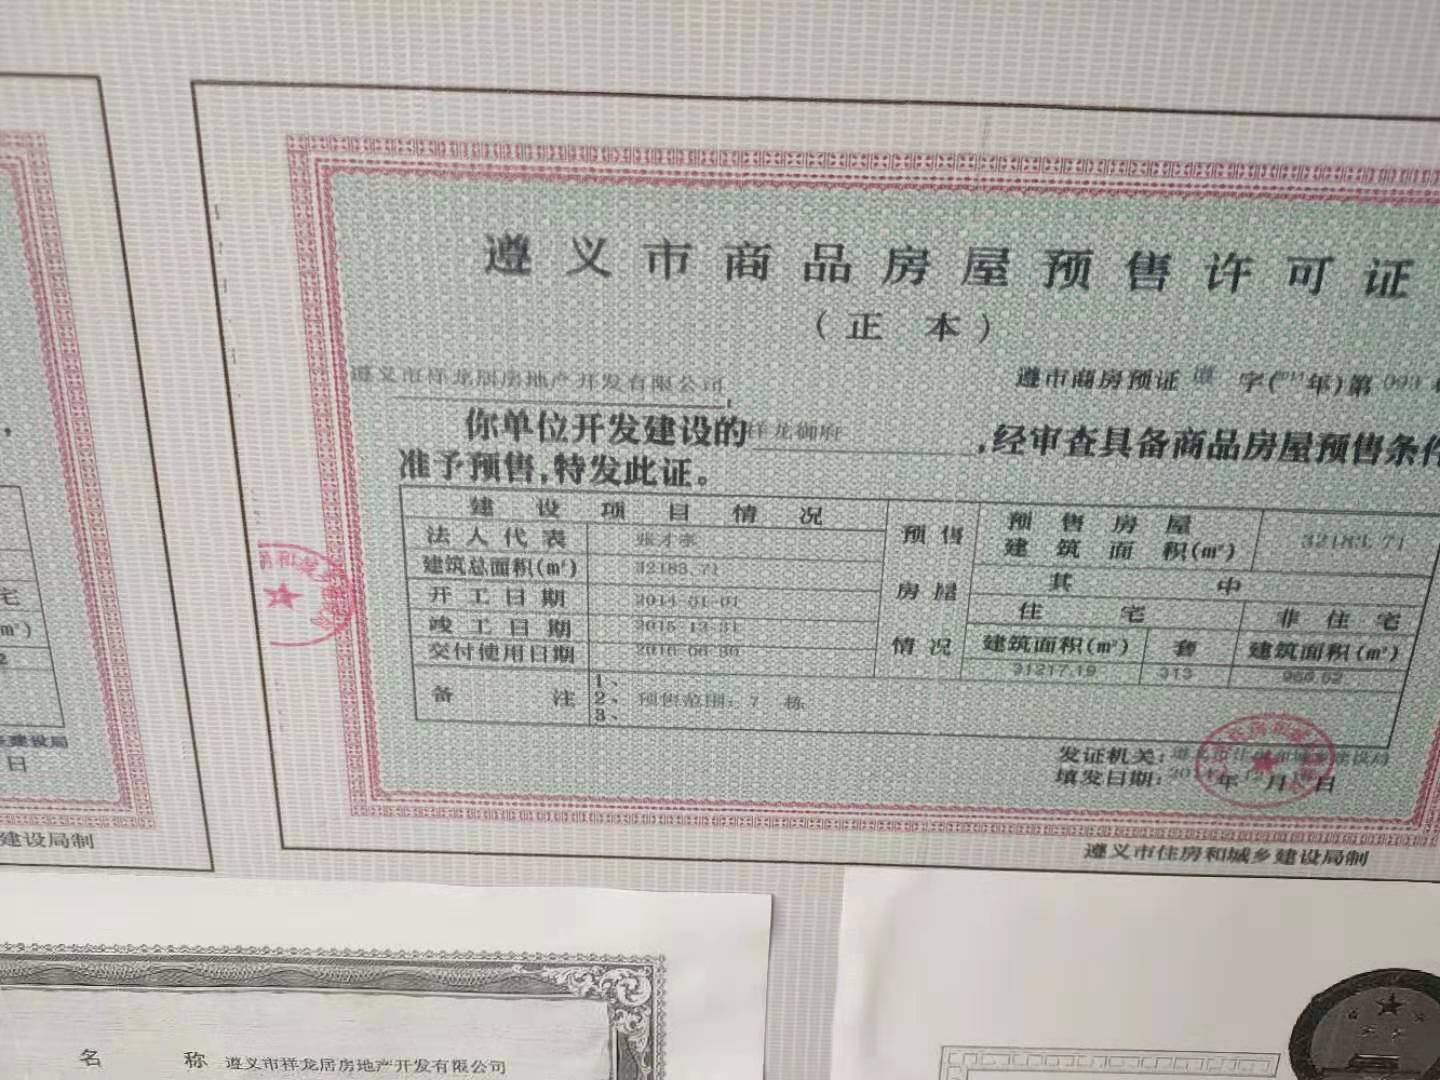 遵义市商品房屋预售许可证
（正本）
遵义市祥龙居房地产开发有限公司,
遵市商房预证 字( 年)第093
你单位开发建设的祥龙御府,经审查具备商品房屋预售条件
准予预售,特发此证。
建设项目情况
法人代表
建筑总面积(㎡) 32183.71
开工日期 2014-01-01
竣工日期 2015-12-31
交付使用日期 2016-06-30
预售
房屋
情况
预售房屋
建筑面积(㎡) 32183.71
其中
住宅 非住宅
建筑面积(㎡) 套 建筑面积(㎡)
31217.19 313 966.52
备注
1、
2、预售范围：7 栋
3、
发证机关:遵义市住房和城乡建设局
填发日期:2014年12月 日
遵义市住房和城乡建设局制
,
宅
m²)
建设局
日
建设局制
名称 遵义市祥龙居房地产开发有限公司